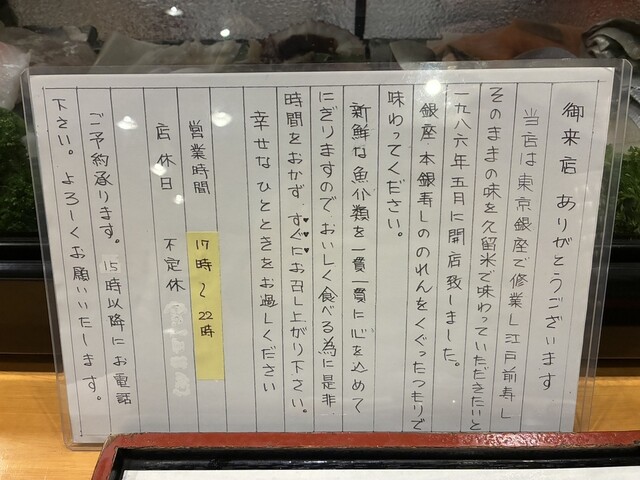 御来店 ありがとうございます
当店は東京銀座で修業し江戸前寿し
そのままの味を久留米で味わっていただきたいと
一九八六年五月に開店致しました。
銀座・本銀寿しののれんをくぐったつもりで
味わってください。
新鮮な魚介類を一貫一貫に心を込めて
にぎりますのでおいしく食べる為に是非
時間をおかず すぐにお召し上がり下さい。
幸せなひとときをお過しください
営業時間 17時～22時
店休日 不定休
ご予約承ります。15時以降にお電話
下さい。よろしくお願いいたします。